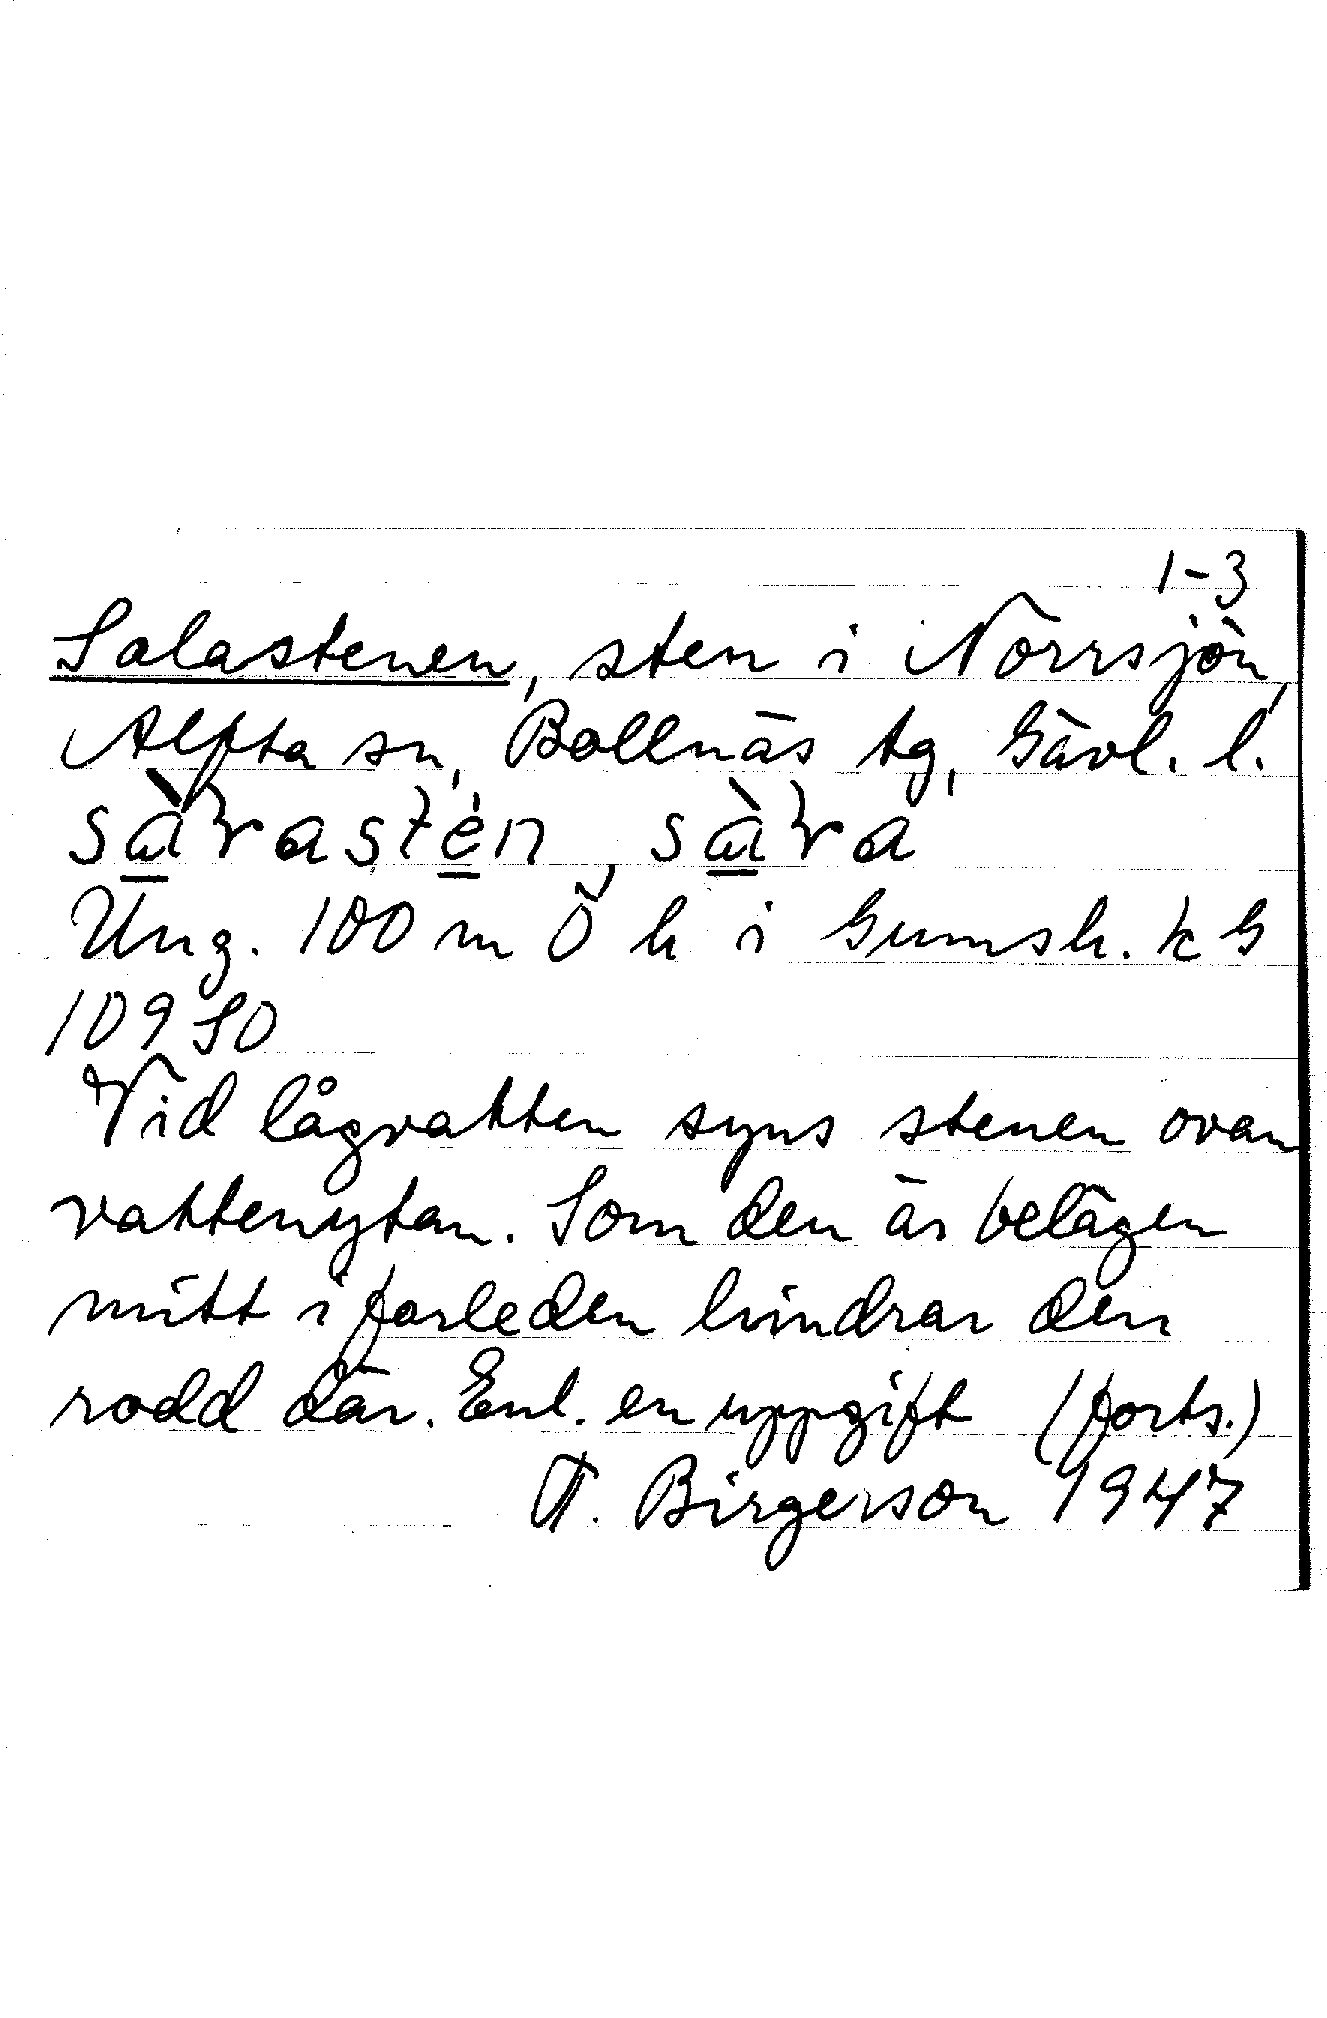 1-3
Salastenen, sten i Norrsjön,
Alfta sn, Bollnäs tg, Gävl. l.
Ung. 100 m Ö h i Gumsh. k G
109 SO
Vid lågvatten syns stenen ovan
vattenytan. Som den är belägen
mitt i farleden hindrar den
rodd där. Enl. en uppgift (forts.)
T. Birgerson 1947